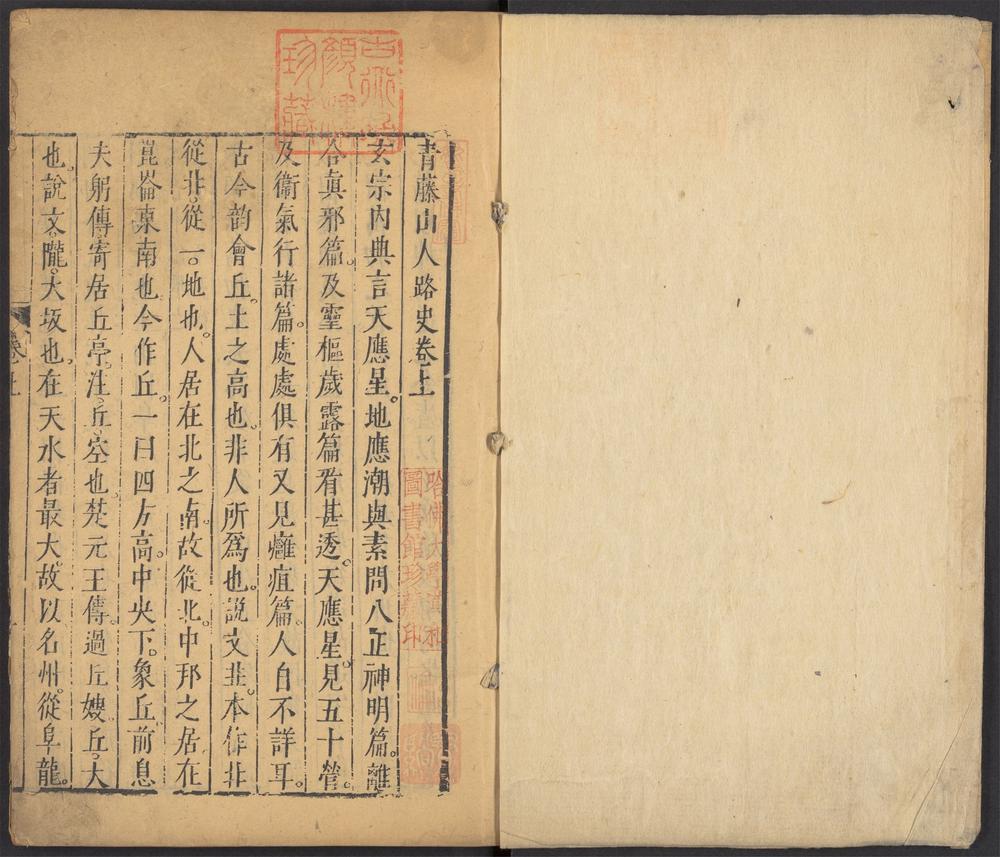 青藤山人路史卷上
玄宗內典言天應星。地應潮與素問八正神明篇。離
合眞邪篇。及靈樞歲露篇看甚透。天應星。見五十營。
及衞氣行諸篇。處處俱有又見癰疽篇。人自不詳耳。
古今韵會丘。土之高也。非人所爲也。說文丠。本作丠
從北。從一。地也。人居在北之南。故從北。中邦之居在
崑崙東南也今作丘。一曰四方高。中央下。象丘。前息
夫躬傳。寄居丘亭。注。丘。空也。楚元王傳。過丘嫂。丘。大
也。說文。隴。大坂也。在天水者最大。故以名州。從阜龍。
卷上
珍藏
哈佛大學漢和
圖書館珍藏印